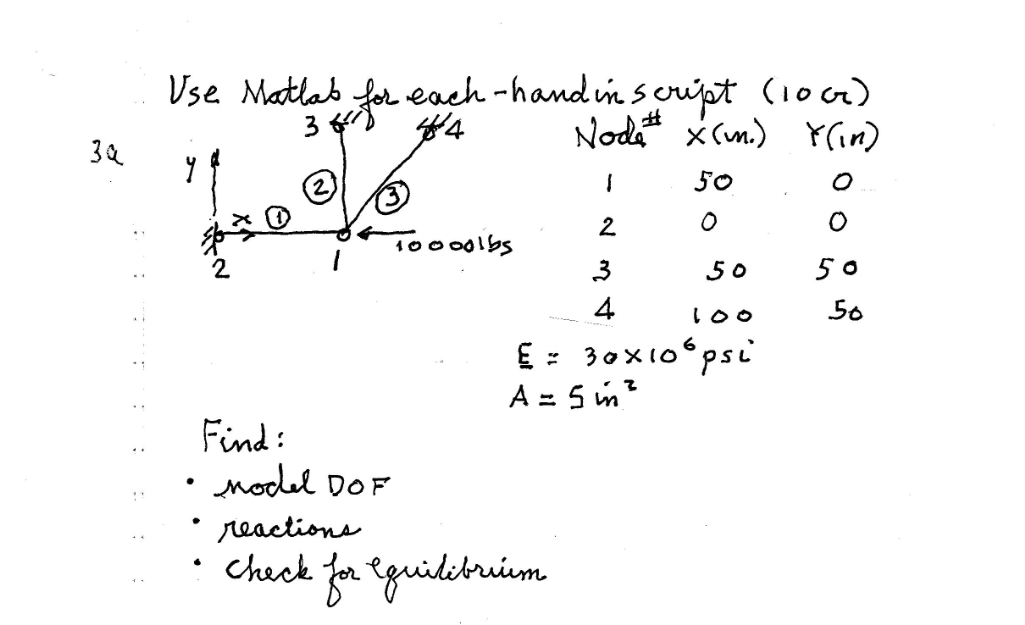 Use Matlab for each - hand in script (10 cr)
3a
3 4
Node# X(in.) Y(in)
y
② ③
1 50 0
x ①
2 0 0
10000lbs
2 1
3 50 50
4 100 50
E = 30×10⁶ psi
A = 5 in²
Find:
• nodel DOF
• reactions
• check for equilibrium